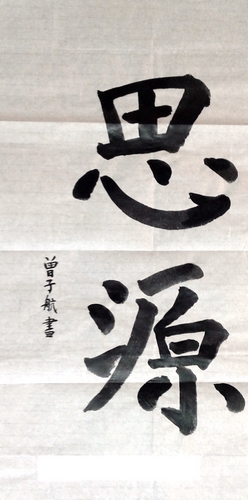 思源
曾子航書